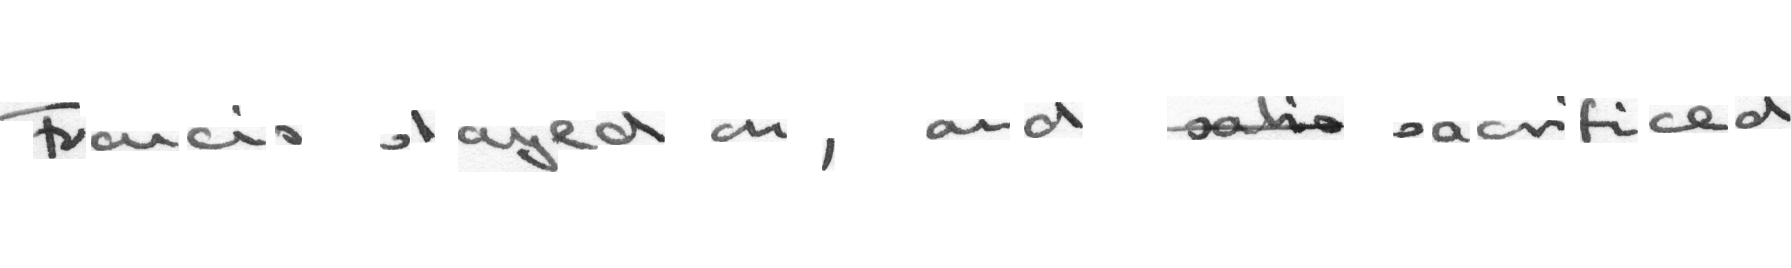 Francis stayed on, and sacrificed